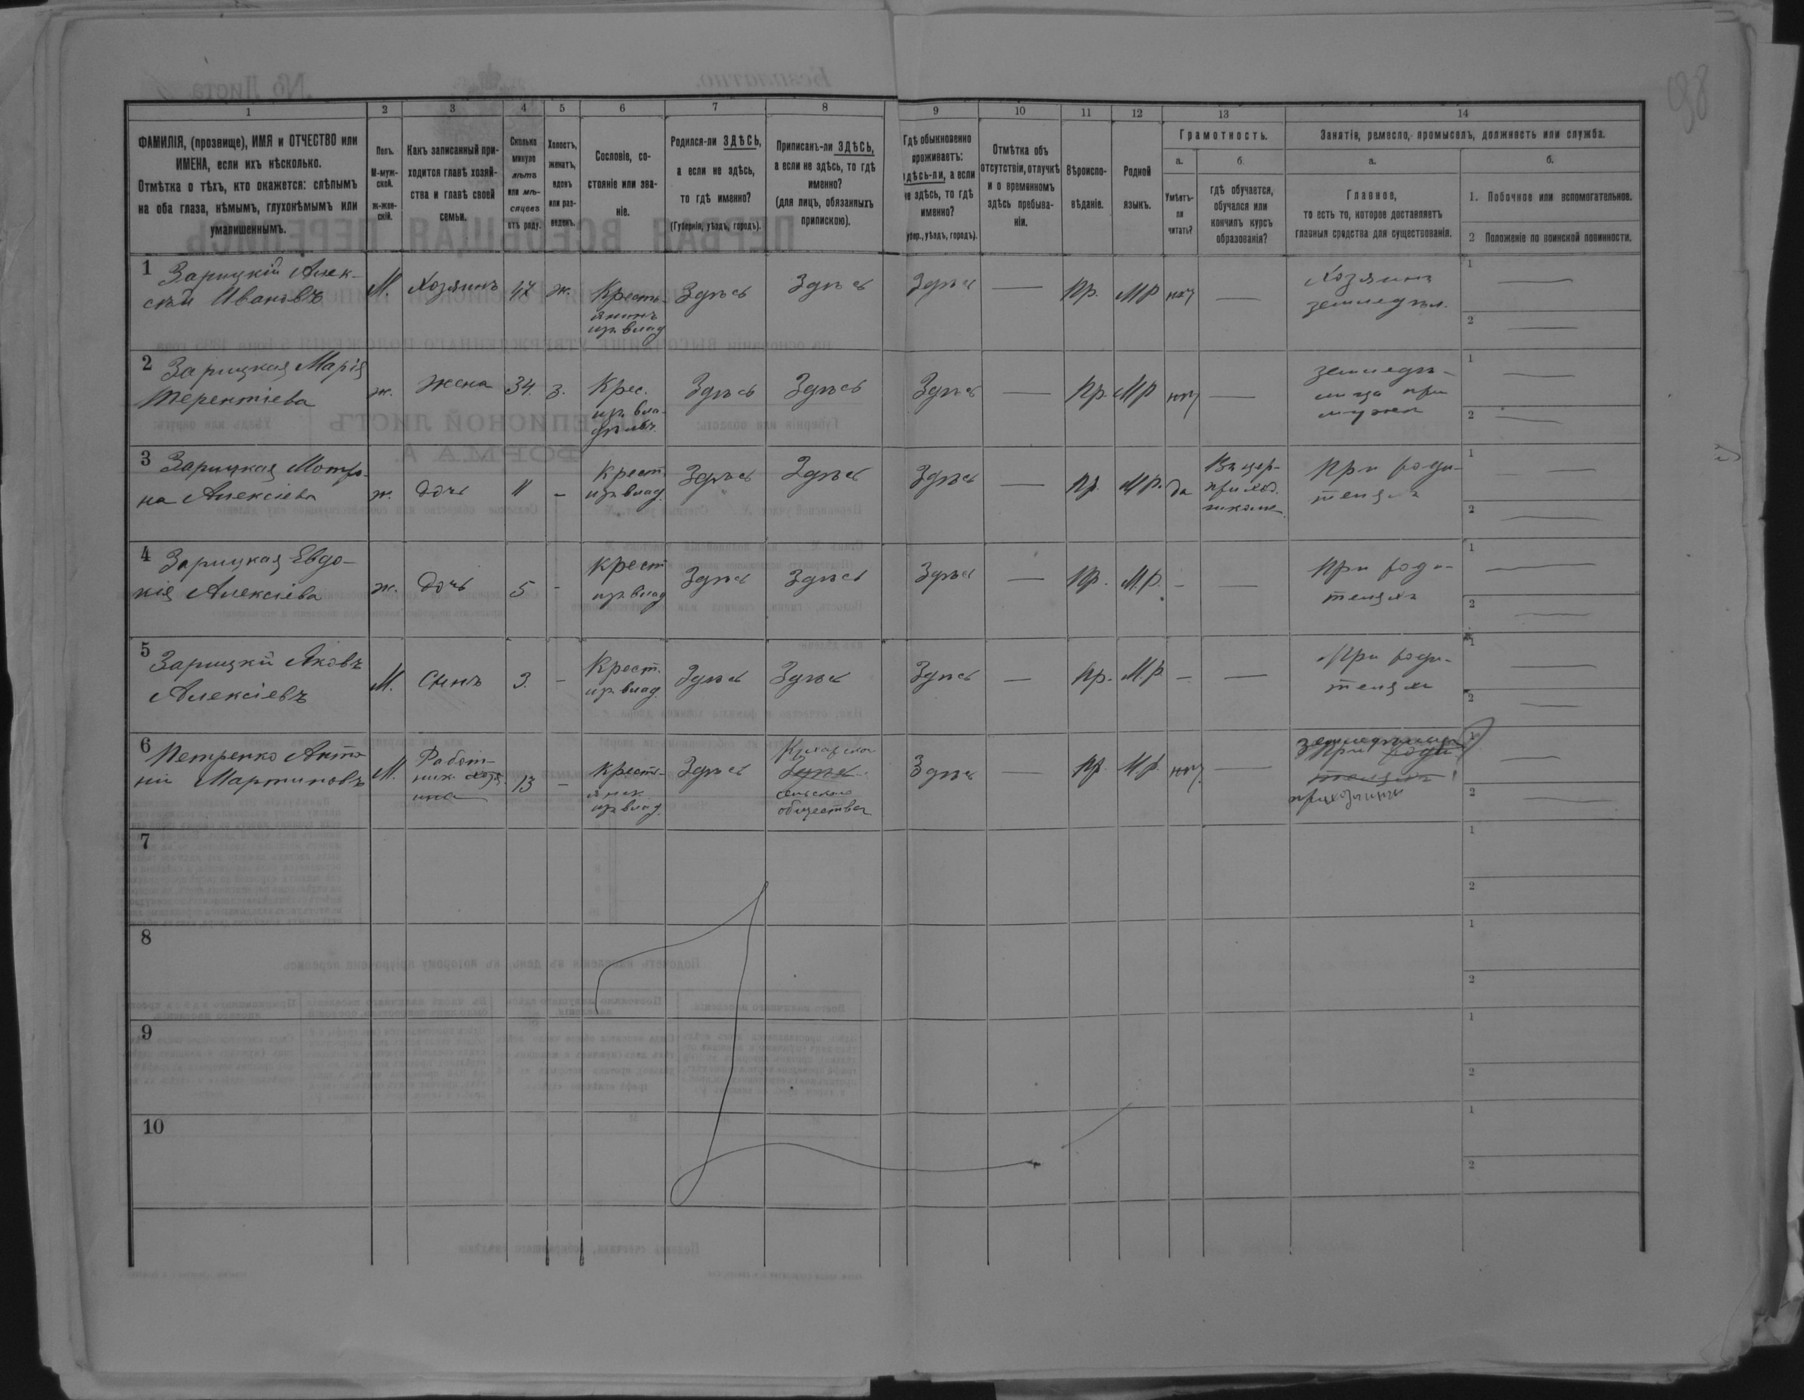 98
1
2
3
4
5
6
7
8
9
10
11
12
13
14
ФАМИЛІЯ, (прозвище), ИМЯ и ОТЧЕСТВО или
ИМЕНА, если ихъ нѣсколько.
Отмѣтка о тѣхъ, кто окажется: слѣпымъ
на оба глаза, нѣмымъ, глухонѣмымъ или
умалишеннымъ.
Полъ.
М-муж-
ской.
Ж-жен-
скій.
Какъ записанный при-
ходится главѣ хозяй-
ства и главѣ своей
семьи.
Сколько
минуло
лѣтъ
или мѣ-
сяцевъ
отъ роду.
Холостъ,
женатъ,
вдовъ
или раз-
веденъ.
Сословіе, со-
стояніе или зва-
ніе.
Родился-ли ЗДѢСЬ,
а если не здѣсь,
то гдѣ именно?
(Губернія, уѣздъ, городъ).
Приписанъ-ли ЗДѢСЬ,
а если не здѣсь, то гдѣ
именно?
(для лицъ, обязанныхъ
припискою).
Гдѣ обыкновенно
проживаетъ:
здѣсь-ли, а если
не здѣсь, то гдѣ
именно?
(губер., уѣздъ, городъ).
Отмѣтка объ
отсутствіи, отлучкѣ
и о временномъ
здѣсь пребыва-
ніи.
Вѣроиспо-
вѣданіе.
Родной
языкъ.
Грамотность.
а.
Умѣетъ-
ли
читать?
б.
гдѣ обучается,
обучался или
кончилъ курсъ
образованія?
Занятіе, ремесло, промыселъ, должность или служба.
а.
Главное,
то есть то, которое доставляетъ
главныя средства для существованія.
б.
1. Побочное или вспомогательное.
2 Положеніе по воинской повинности.
1 Зарицкій Алек-
сѣй Ивановъ
М.
Хозяинъ
47
ж.
Кресть-
янинъ
изъ влад
Здѣсь
Здѣсь
Здѣсь
Пр.
МР
нѣт
Хозяинъ
земледѣл.
1
2
2 Зарицкая Марія
Терентіева
ж.
Жена
34
з.
Крес.
изъ вла-
дѣльч.
Здѣсь
Здѣсь
Здѣсь
Пр.
МР
нѣт
земледѣ-
лица при
мужѣ
1
2
3 Зарицкая Мотро-
на Алексіева
ж.
Дочь
11
Крест.
изъ влад.
Здѣсь
Здѣсь
Здѣсь
Пр.
МР.
да
Въ цер-
приход.
школѣ.
При роди-
теляхъ
1
2
4 Зарицкая Евдо-
кія Алексіева
ж.
Дочь
5
Крест
изъ влад
Здѣсь
Здѣсь
Здѣсь
Пр.
МР.
При роди-
теляхъ
1
2
5 Зарицкій Яковъ
Алексіевъ
М.
Сынъ
3.
Крест.
изъ влад
Здѣсь
Здѣсь
Здѣсь
Пр.
МР.
При роди-
теляхъ
1
2
6 Петренко Анто-
ній Мартиновъ
М.
Работ-
ник хозя
ина
13
Кресть-
янин
изъ влад.
Здѣсь
Здѣсь
сельское
общества
Здѣсь
Пр.
МР.
нѣт
При роди
теляхъ
1
2
7
1
2
8
1
2
9
1
2
10
1
2